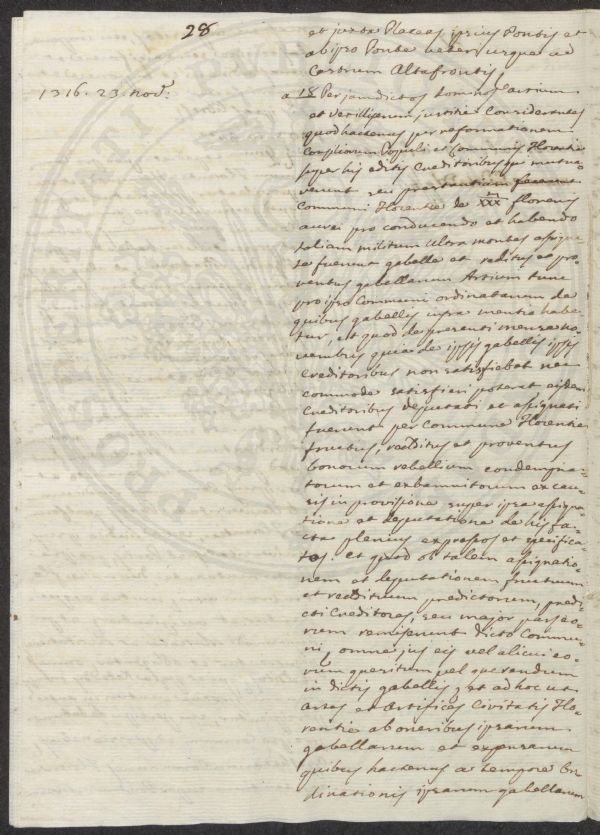 28
et juxta Plateas ipsius Pontis et
ab ipso Ponte veteri usque ad
Castrum Altafrontis
1316. 23. nov.
a 18 Per jamdictos Dominos Artium
et Vexilliferum justitie Considerantes
quod hactenus per reformationem
Consiliorum Populi et Communis Florentie
super his editis Creditoribus qui mutua-
verunt seu prestantiam fecerunt
Communi Florentie de XXX florenis
aurei pro conducendo et habendo
taliam militum Ultramontes assigna-
te fuerunt gabelle et reditus et pro-
ventus gabellarum Artium tunc
pro ipso Communi ordinatarum de
quibus gabellis infra mentio habe-
tur, et quod de presenti mense no-
vembris quia de ipsis gabellis ipsis
Creditoribus non satisfiebat nec
commode satisfieri poterat eisdem
Creditoribus deputati et assignati
fuerunt per Commune Florentie
fructus, redditus et proventus
bonorum rebellium condempna-
torum et exbannitorum ex cau-
sis in provisione super ipsa assigna-
tione et deputatione de his fac-
ta plenius expressos et specifica-
tos. et quod ob talem assignatio-
nem et deputationem fructuum
et reddituum predictorum, predi-
cti Creditores, seu major pars eo-
rum remiserunt dicto Commu-
ni, omne jus eis vel alicui eo-
rum quesitum vel querendum
in dictis gabellis, et ad hoc ut
artes et Artifices Civitatis Flo-
rentie ab oneribus ipsarum
gabellarum et expensarum
quibus hactenus a tempore Or-
dinationis ipsarum gabellarum